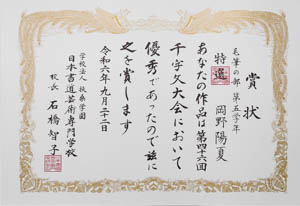 賞状
毛筆の部 第五学年
特選 岡野陽夏
あなたの作品は第四十六回
千字文大会において
優秀であったので茲に
之を賞します
令和六年九月二十二日
学校法人 扶桑学園
日本書道芸術専門学校
校長 石橋智子